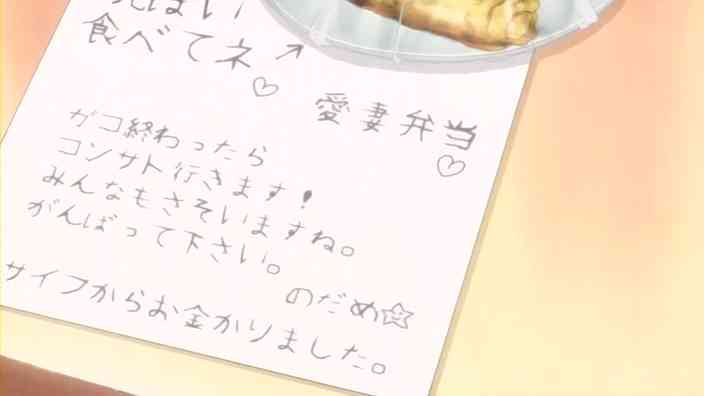 ぱい
食べてネ♡
愛妻弁当♡
ガコ終わったら
コンサト行きます!
みんなもさそいますね。
がんばって下さい。
のだめ☆
サイフからお金かりました。